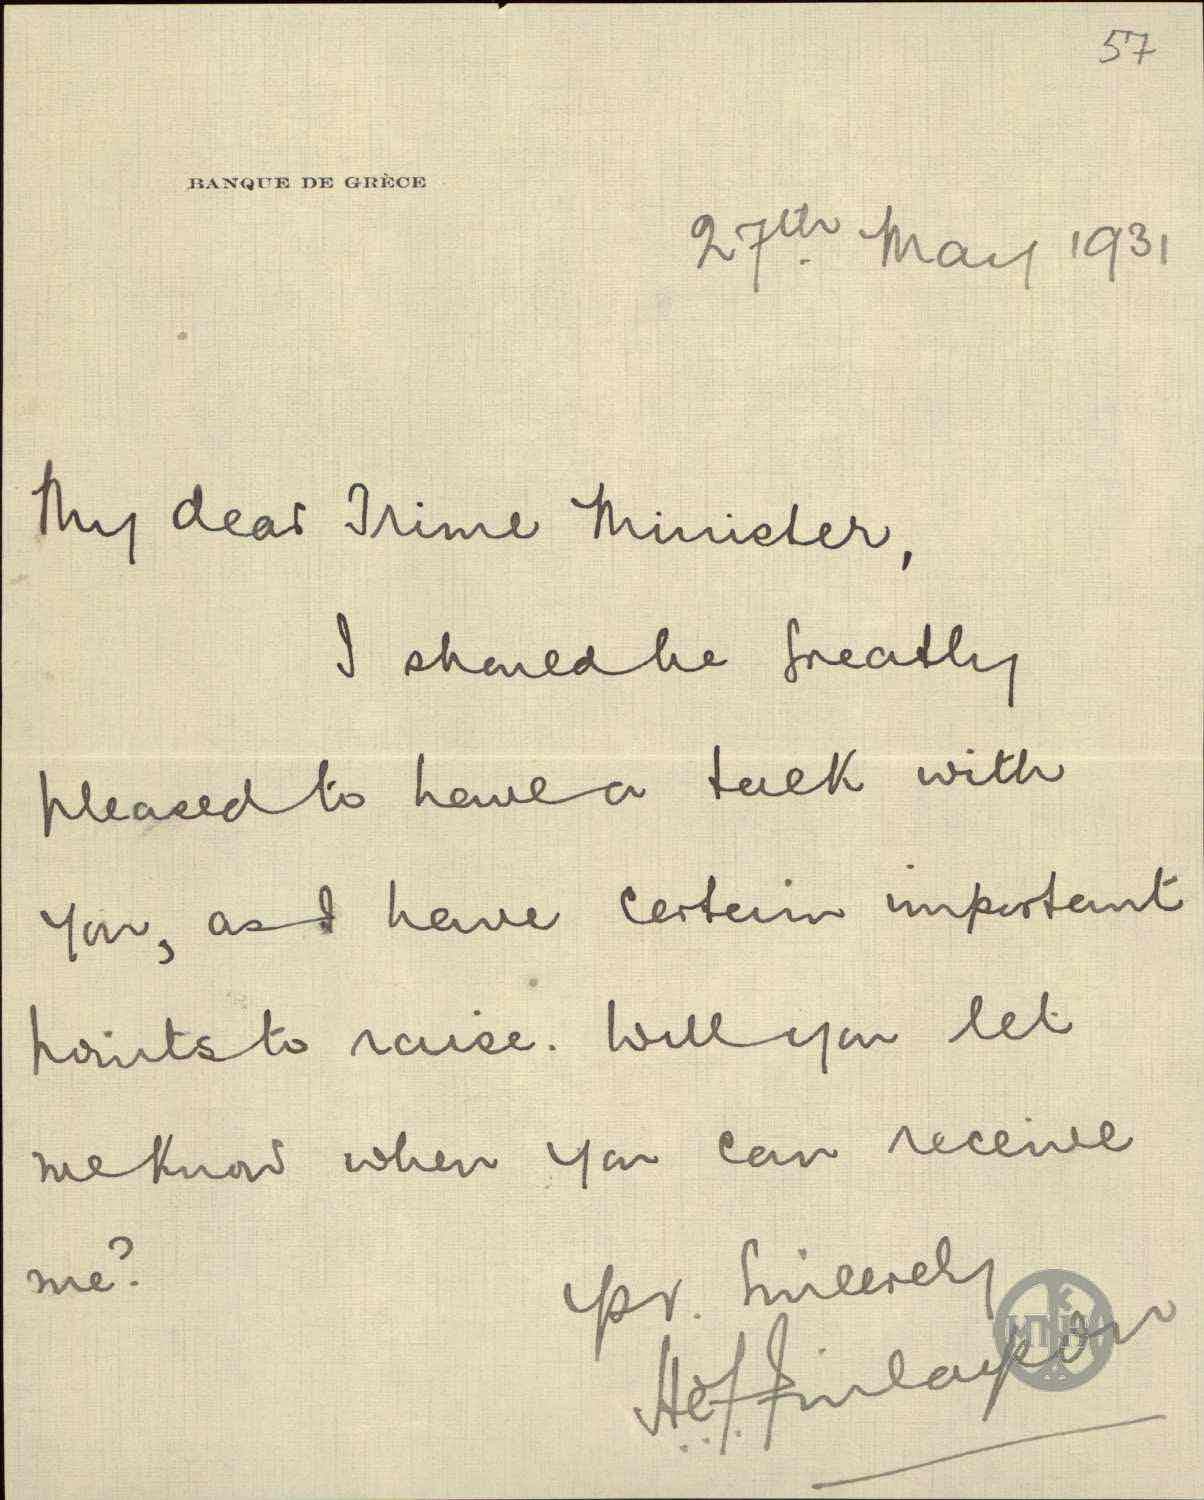 57
BANQUE DE GRÈCE
27th. May 1931
My dear Prime Minister,
I should be greatly
pleased to have a talk with
you, as I have certain important
points to raise. Will you let
me know when you can receive
me?
Yrs. Sincerely
H.C.F. Finlayson